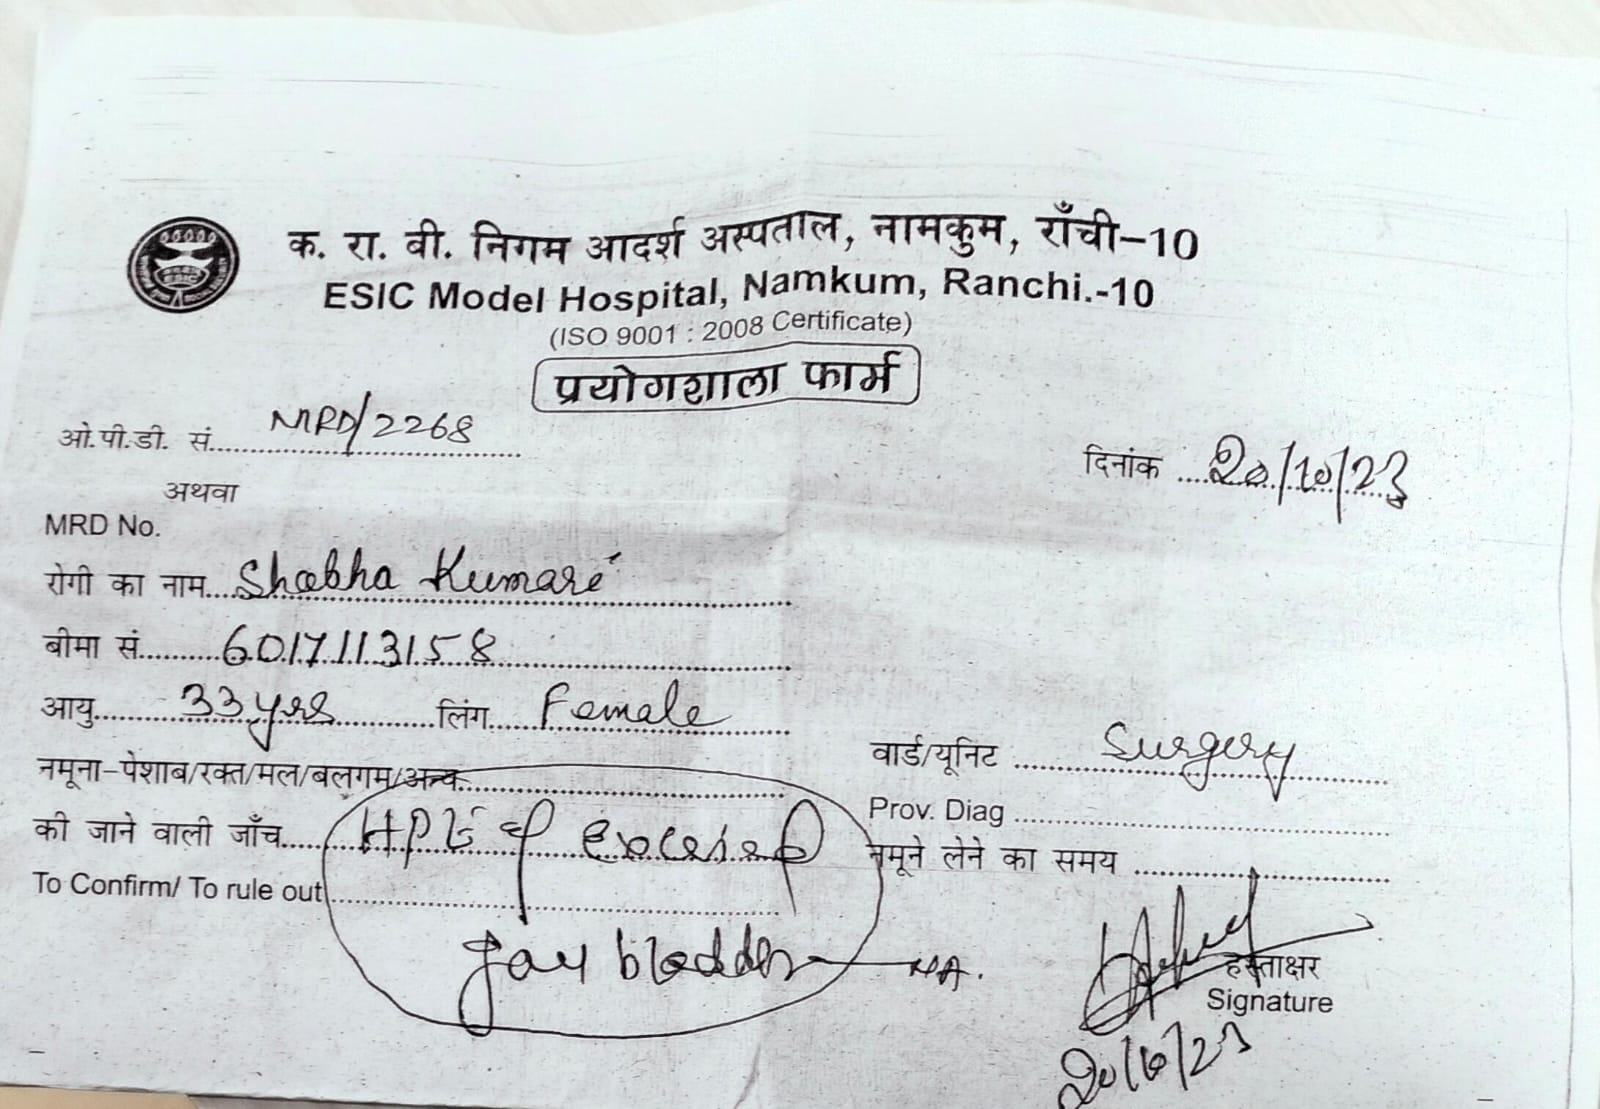 क. रा. बी. निगम आदर्श अस्पताल, नामकुम, राँची-10
ESIC Model Hospital, Namkum, Ranchi.-10
(ISO 9001 : 2008 Certificate)
प्रयोगशाला फार्म
ओ.पी.डी. सं. MRD/2268
दिनांक 20/10/23
अथवा
MRD No.
रोगी का नाम Shobha Kumari
बीमा सं. 6017113158
आयु 33 yrs लिंग Female
वार्ड/यूनिट Surgery
नमूना-पेशाब/रक्त/मल/बलगम/अन्य
Prov. Diag
की जाने वाली जाँच HPE of excised
नमूने लेने का समय
To Confirm/ To rule out
gall bladder NA.
हस्ताक्षर
Signature
20/10/23